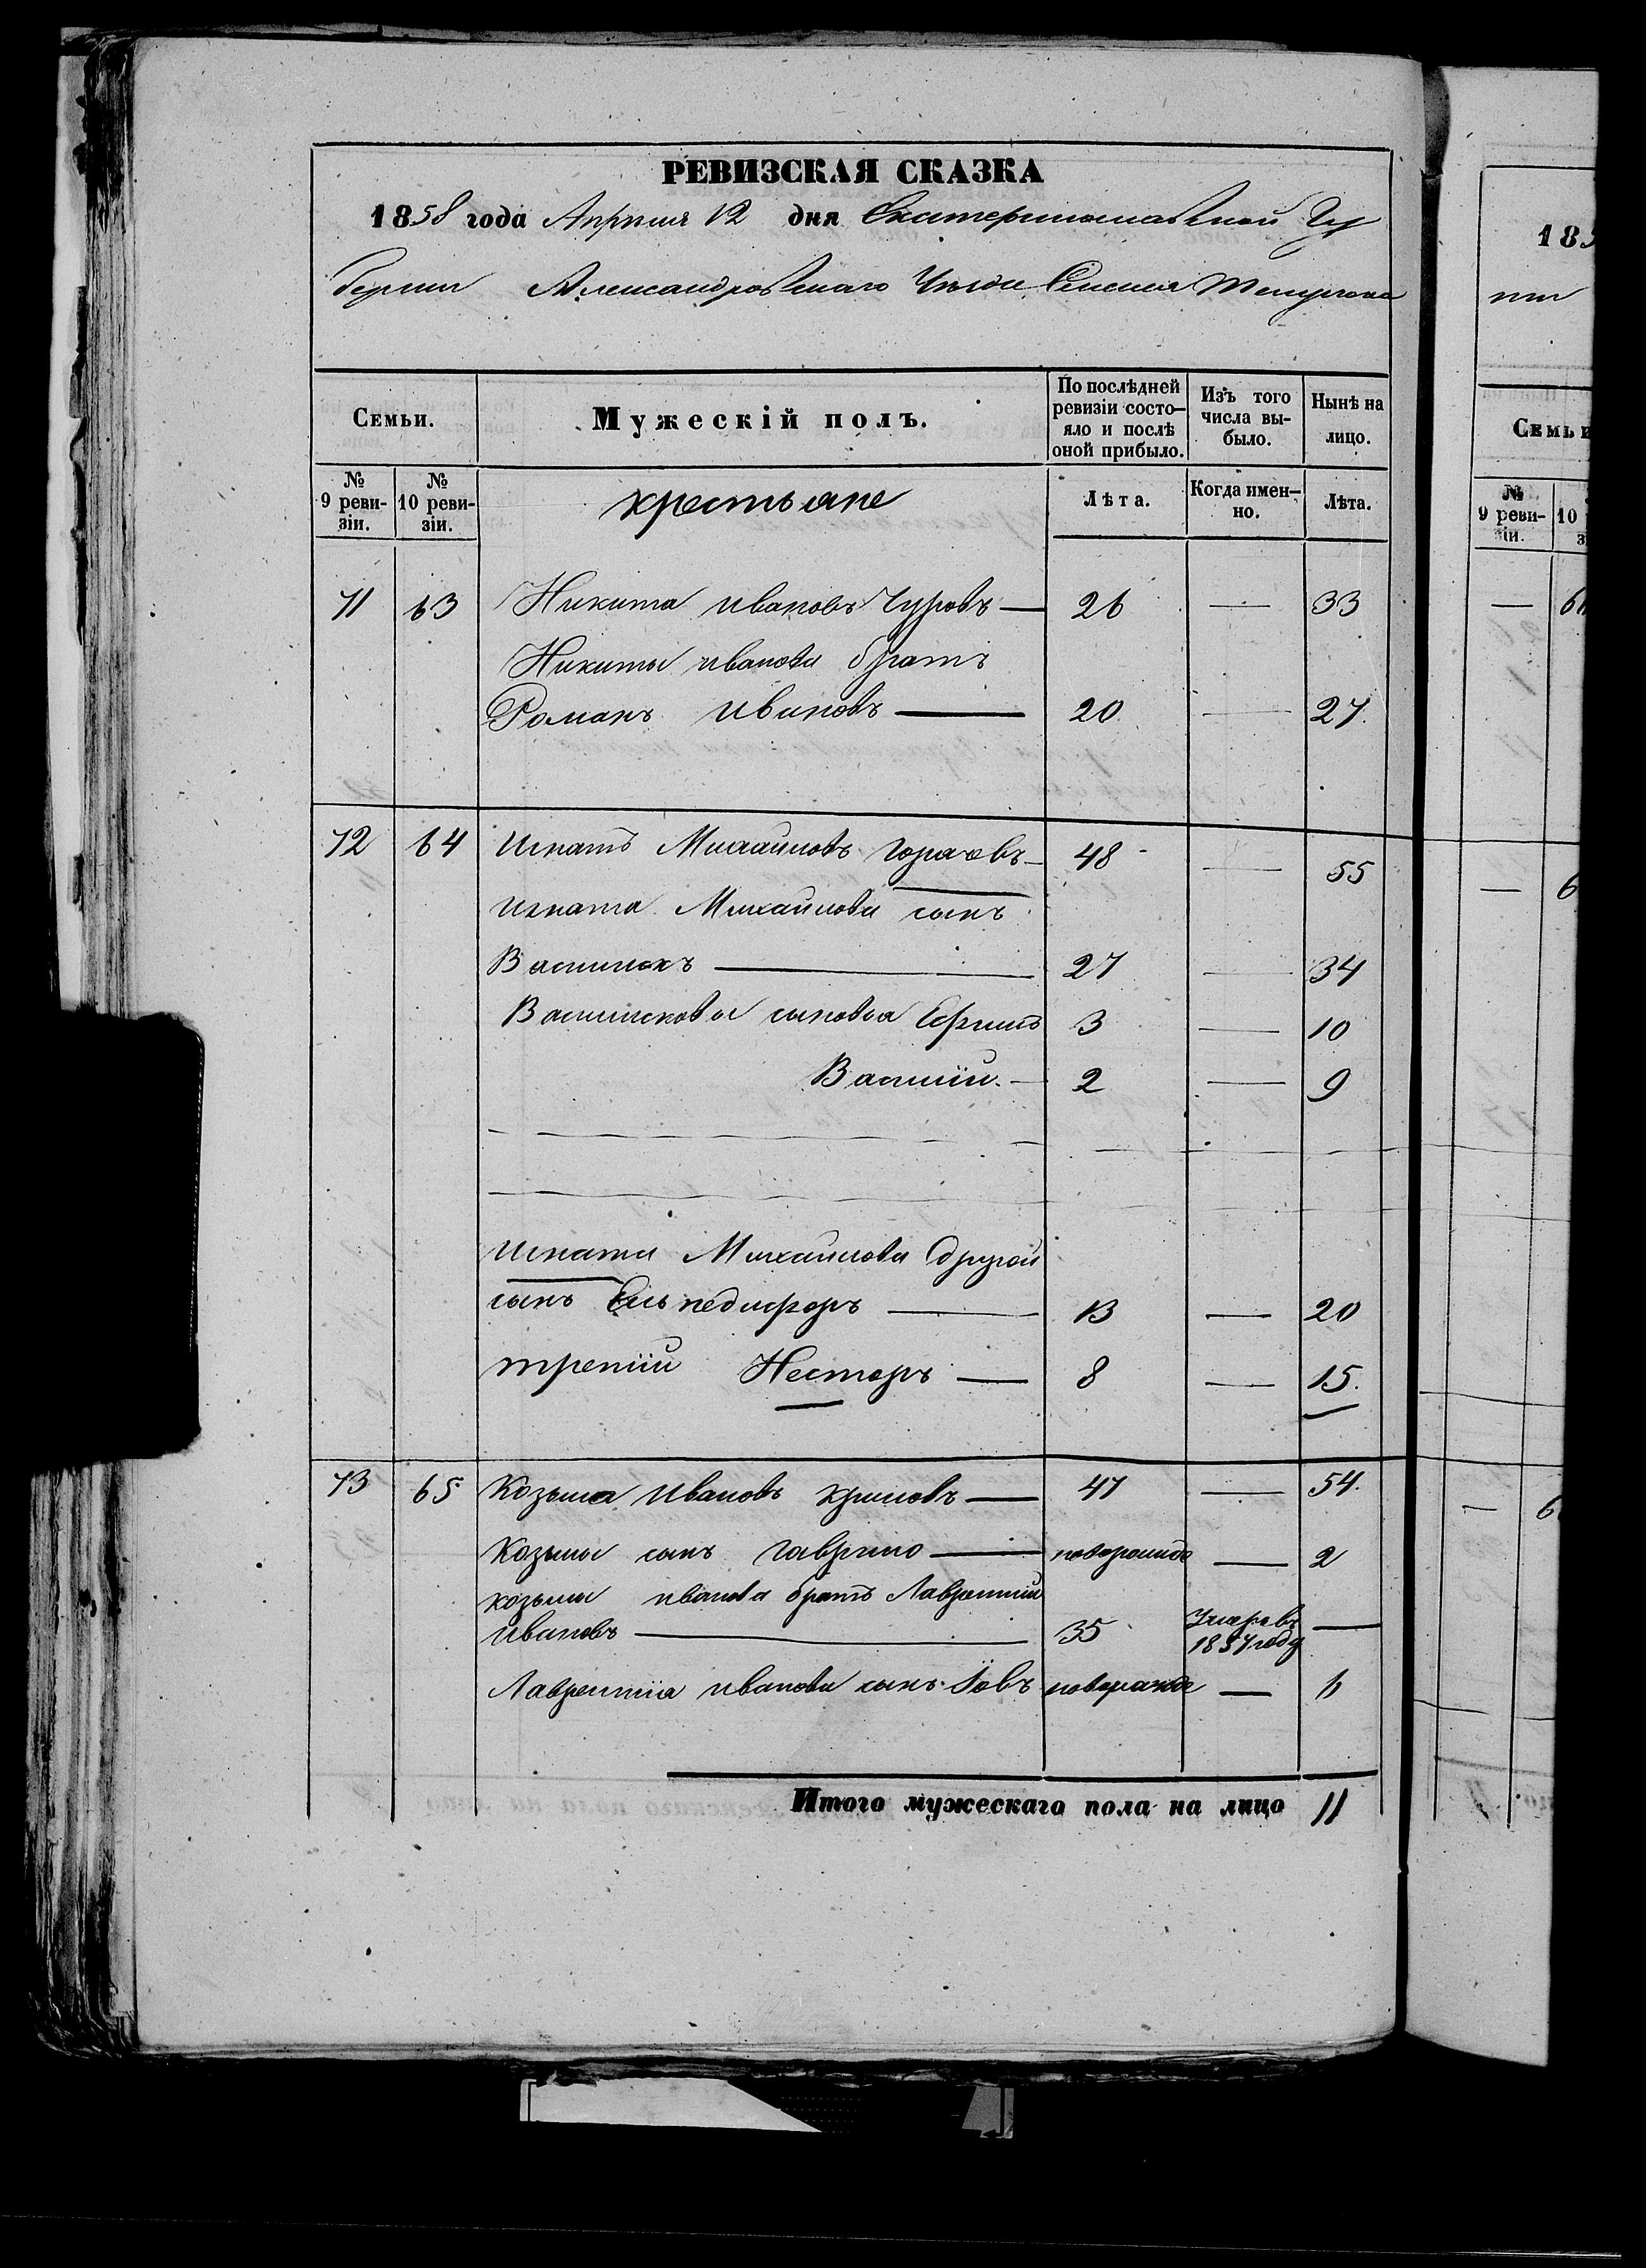 РЕВИЗСКАЯ СКАЗКА
1858 года Апреля 12 дня Екатеринославской Гу
бернии Александровскаго Уезда Селения Темрюка
Семьи.
Мужескій полъ.
По послѣдней ревизіи состо-яло и послѣ оной прибыло.
Изъ того числа вы-было.
Нынѣ на лицо.
№ 9 реви-зіи.
№ 10 реви-зіи.
крестьяне
Лѣта.
Когда имен-но.
Лѣта.
71 63 Никита Ивановъ Чуровъ — 26 — 33
Никиты Иванова братъ
Романъ Ивановъ — 20 — 27.
72 64 Игнатъ Михайловъ Горачевъ — 48 — 55
Игната Михайлова сынъ
Василискъ — 27 — 34
Василисковы сыновья Ефимъ 3 — 10
Василій — 2 — 9
Игната Михайлова другой
сынъ Ельпедифоръ — 13 — 20
третій Несторъ — 8 — 15.
73 65 Козьма Ивановъ Крыловъ — 47 — 54.
Козьмы сынъ Гаврило — новорожде — 2
Козьмы Иванова братъ Лаврентий
Ивановъ — 35 Умеръ въ 1857 году —
Лаврентія Иванова сынъ Іовъ новорожде — 6
Итого мужескаго пола на лицо 11
185
Семьи
№ 9 реви-зіи.
10